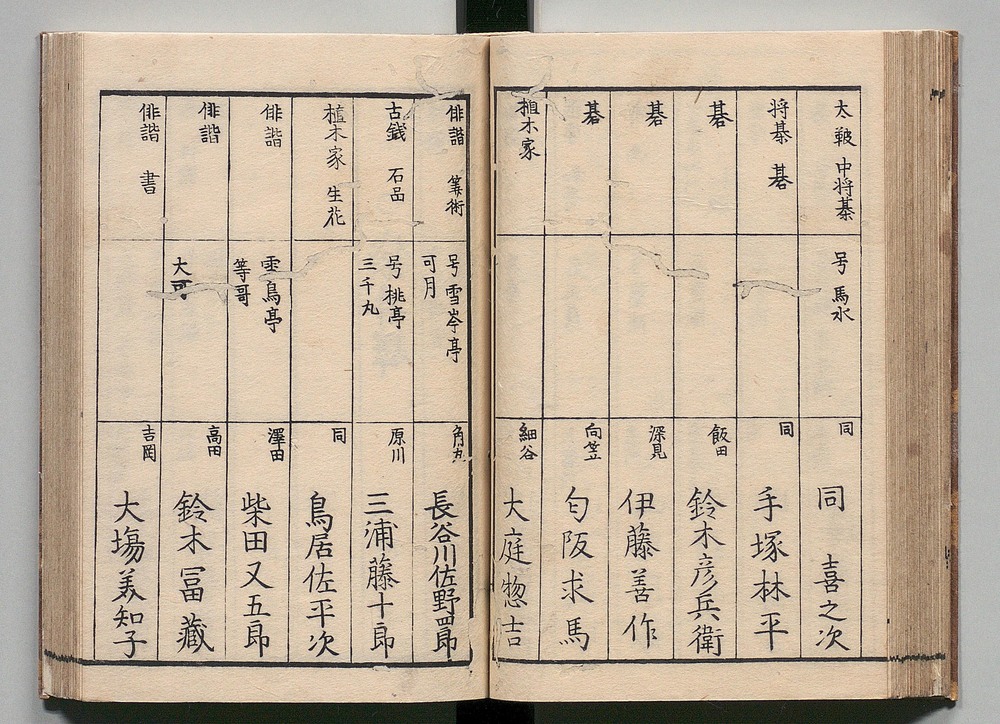 太鞁 中将棊
号 馬水
同
同 喜之次
将棊 碁
同
手塚林平
碁
飯田
鈴木彦兵衛
碁
深見
伊藤善作
碁
向笠
匂阪求馬
植木家
細谷
大庭惣吉
俳諧 筭術
号 雪岑亭
可月
角丸
長谷川佐野四郎
古銭 石品
号 桃亭
三千丸
原川
三浦藤十郎
植木家 生花
同
鳥居佐平次
俳諧
雲鳥亭
等哥
澤田
柴田又五郎
俳諧
大可
高田
鈴木冨藏
俳諧 書
吉岡
大塲美知子